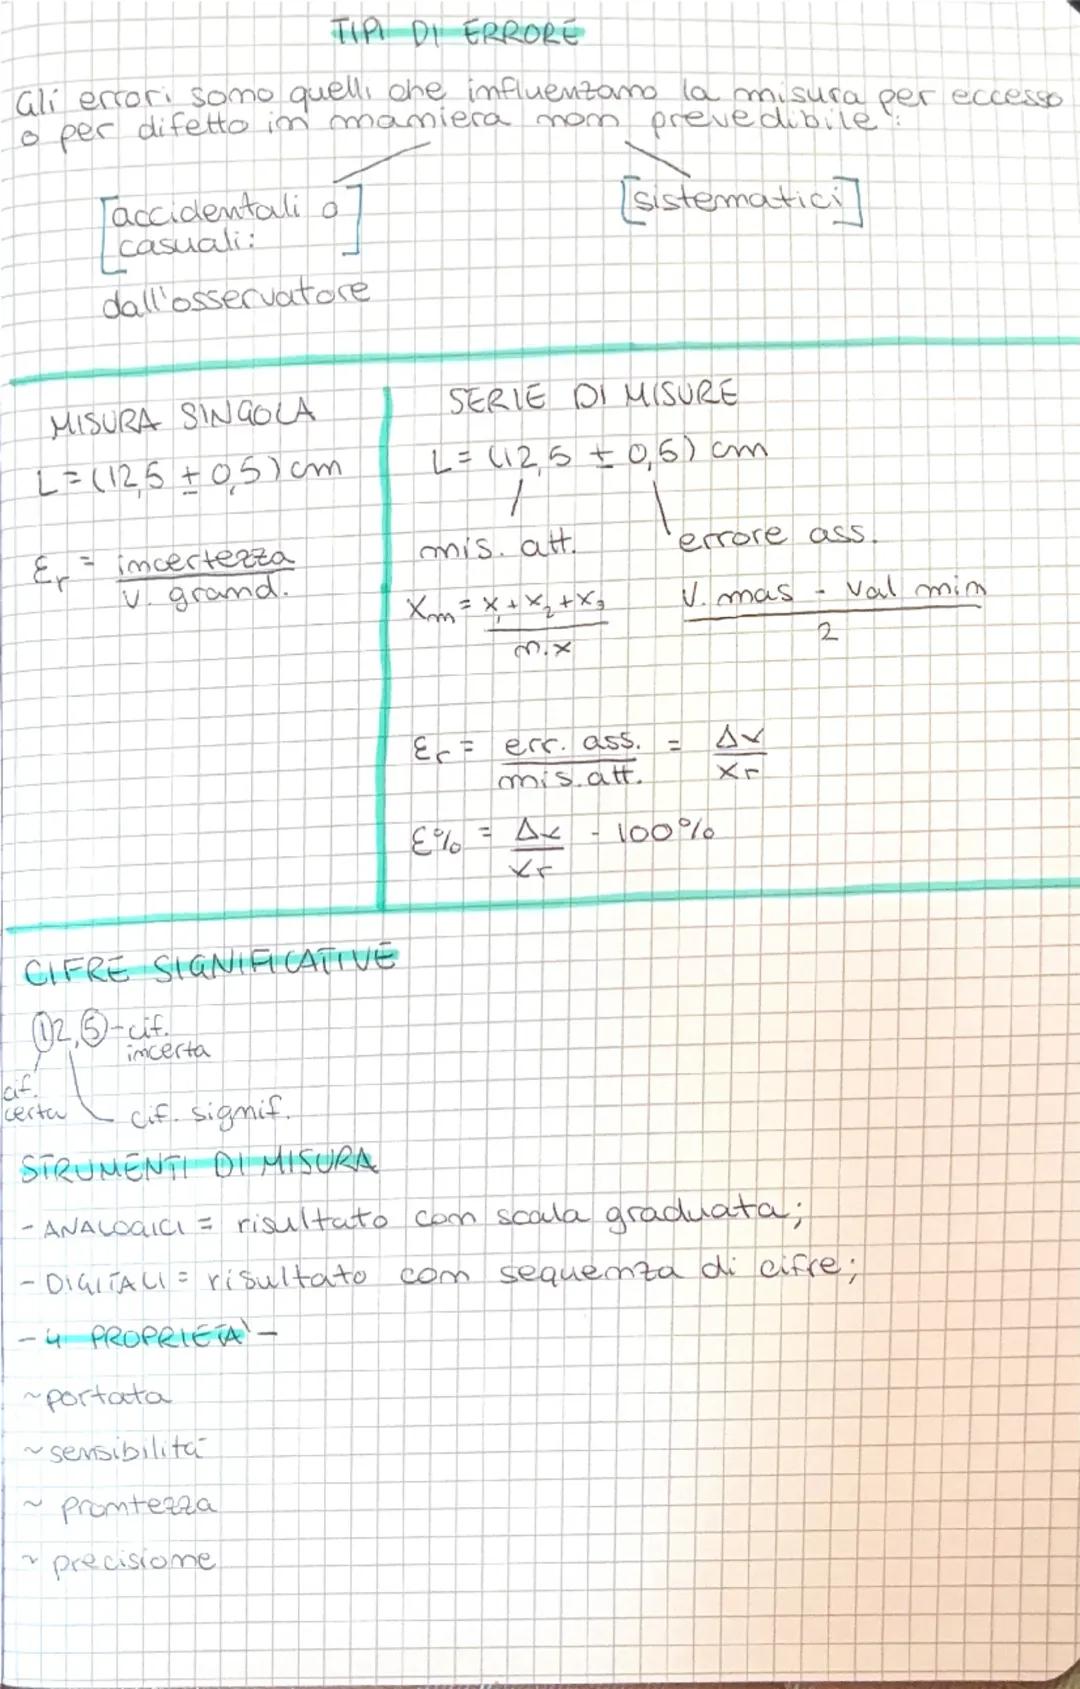 TIPI DI ERRORE
Gli errori sono quelli che influenzano la misura per eccesso
o per difetto in maniera non prevedibile:
[accidentali o
casuali:]
[sistematici]
dall'osservatore
MISURA SINGOLA
L=(12,5 ± 0,5) cm
Er = incertezza
v. grand.
SERIE DI MISURE
L= (12,5 ± 0,5) cm
mis. att.
errore ass.
Xm = x₁+x₂+x₃
n.x
V. mas - val min
2
Er = err. ass. = Δx
mis. att. xr
E% = Δx - 100%
xr
CIFRE SIGNIFICATIVE
12,5 - cif.
incerta
cif.
certa
cif. signif.
STRUMENTI DI MISURA
- ANALOGICI = risultato con scala graduata;
- DIGITALI = risultato con sequenza di cifre;
- 4 PROPRIETA' -
~ portata
~ sensibilità
~ prontezza
~ precisione